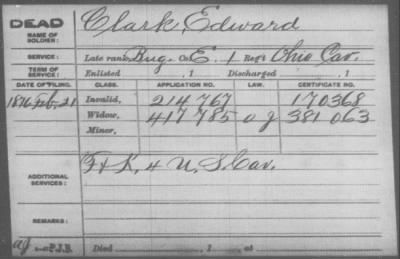 DEAD Clark, Edward
NAME OF SOLDIER:
SERVICE: Late rank, Bug. Co. E, 1 Reg't Ohio Cav.
TERM OF SERVICE: Enlisted , 1 Discharged , 1
DATE OF FILING. CLASS. APPLICATION NO. LAW. CERTIFICATE NO.
1876 Feb. 21 Invalid, 214 767 170368
Widow, 417 785 381 063
Minor,
ADDITIONAL SERVICES: F & K, 4 U.S. Cav.
REMARKS:
Died , 1 , at